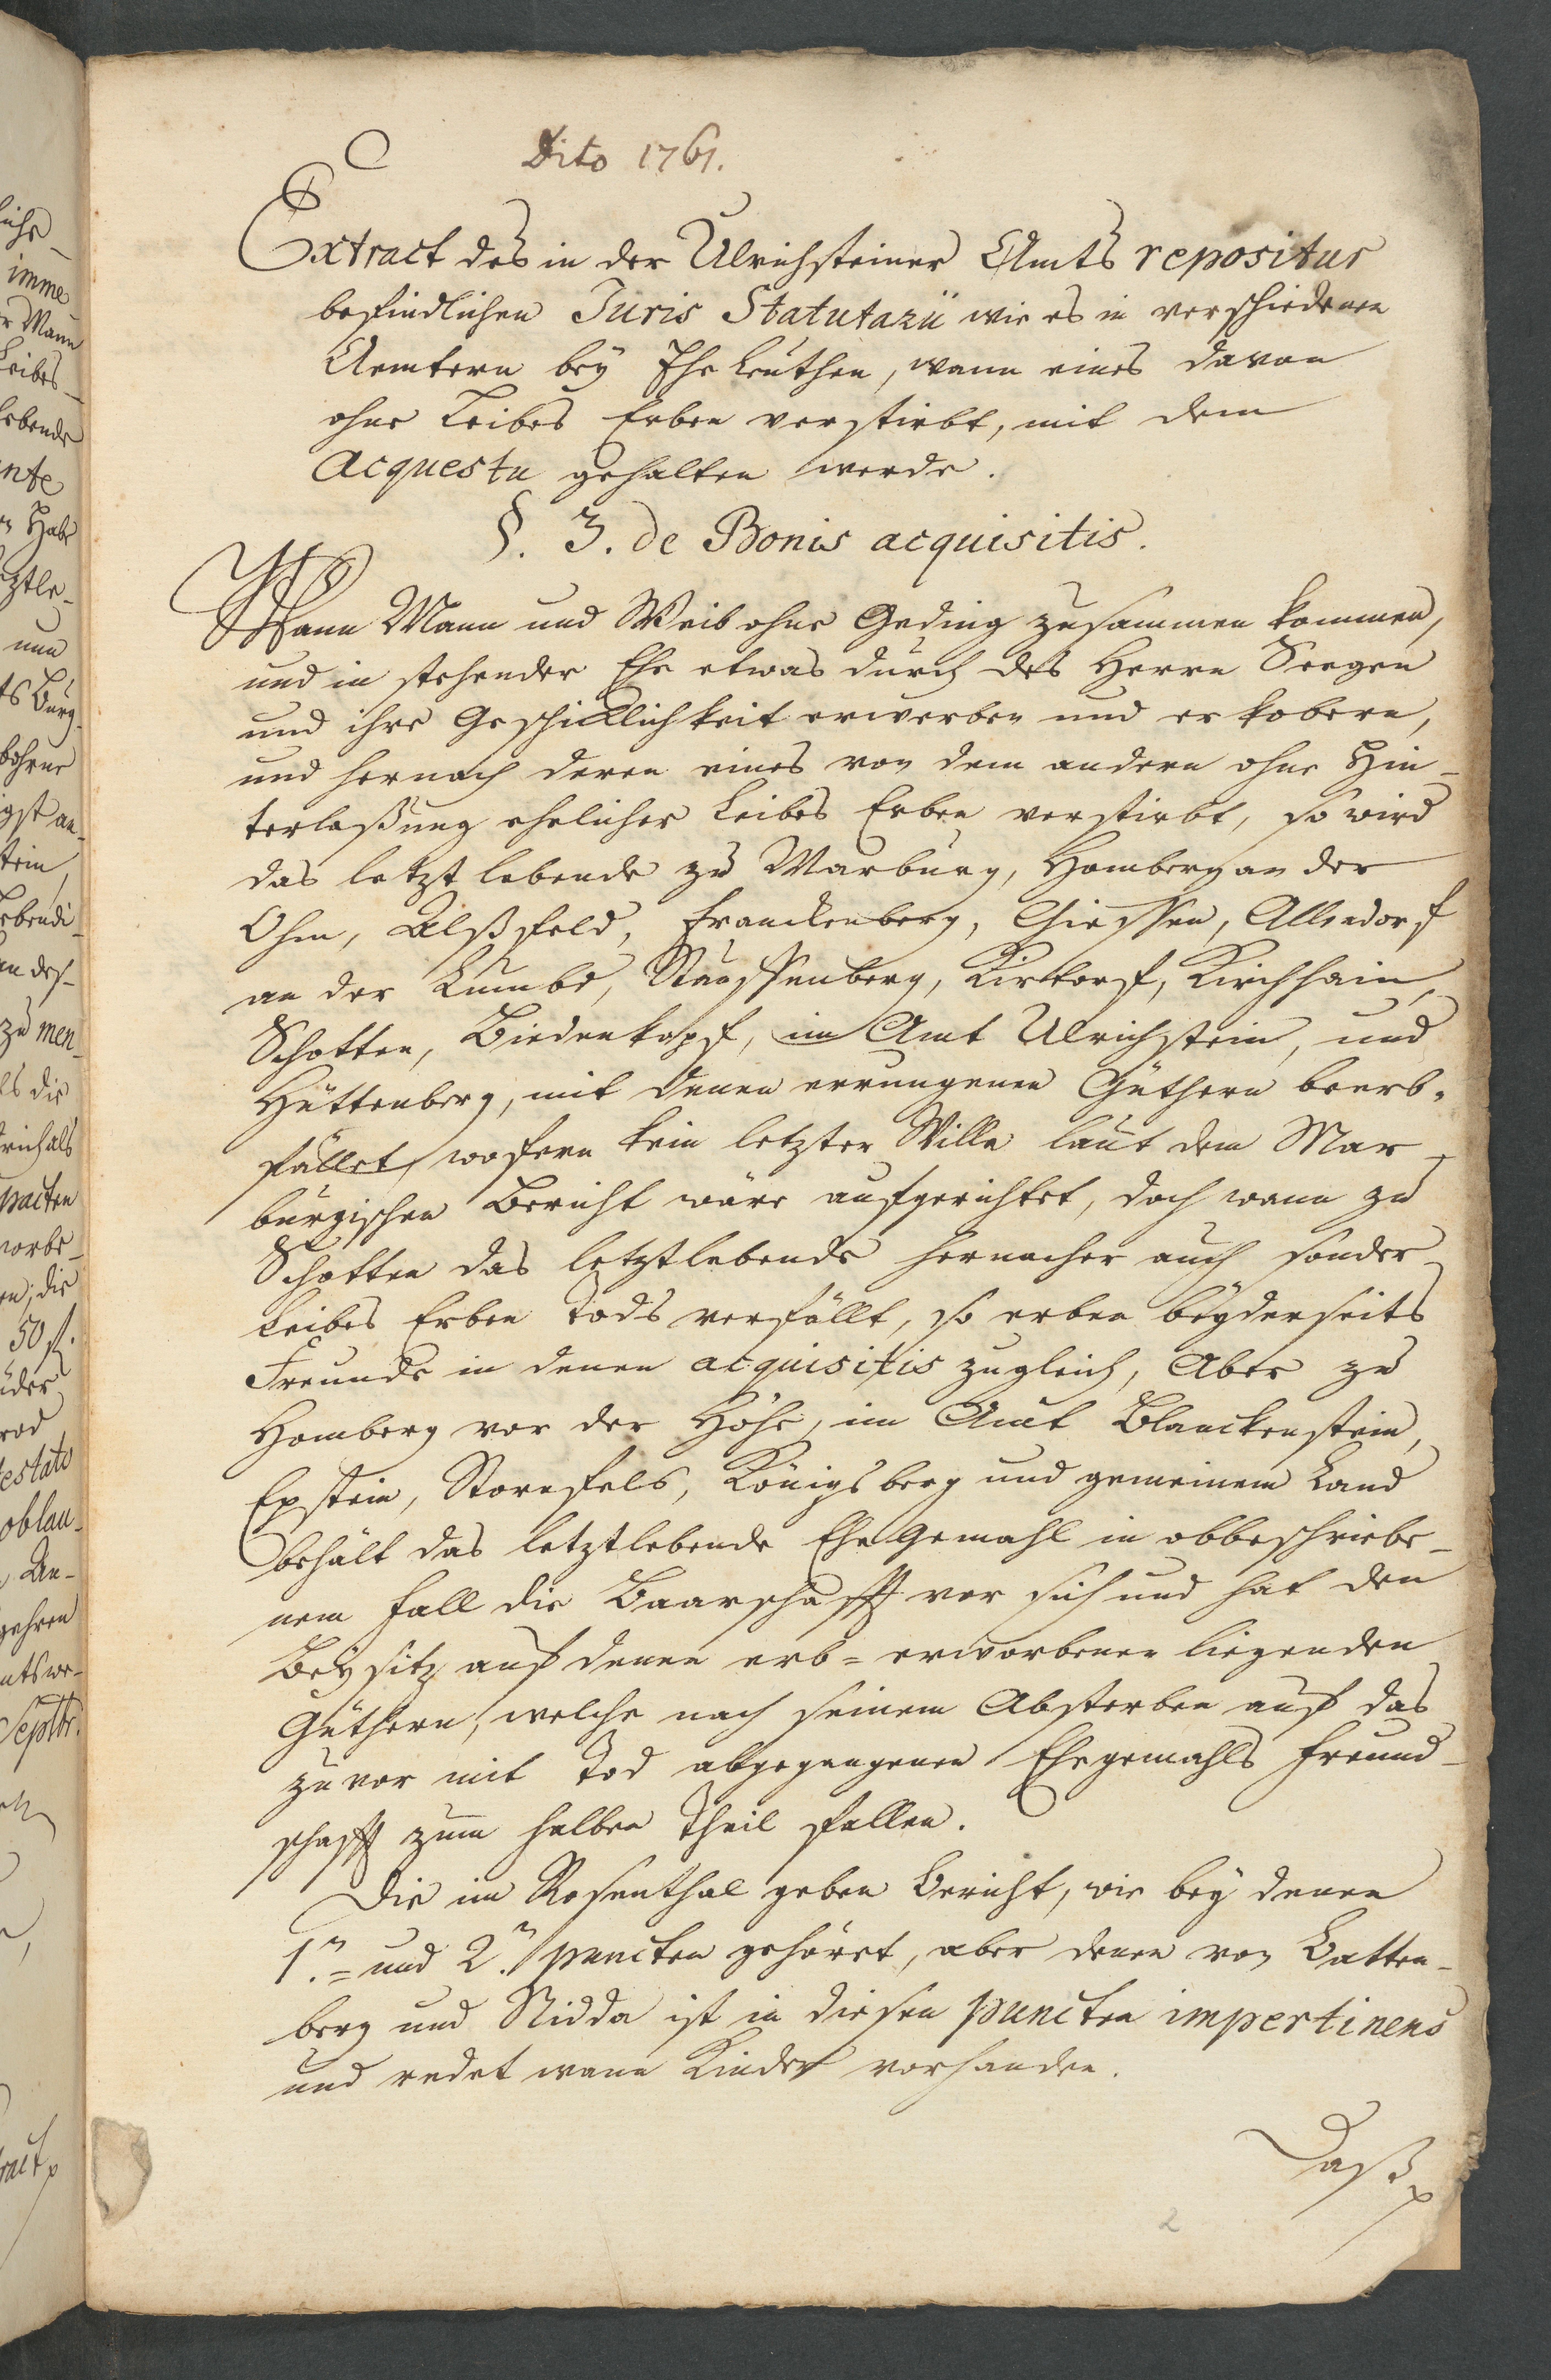 Dito 1761.
Extract des in der Ulrichsteiner Amts repositur
befindlichen Juris Statutarii wie es in verschiedenen
Aemtern bey Ehe Leuthen, wann eines davon
ohne Leibes Erben verstirbt, mit dem
Acquestu gehalten werde.
§. 3. de Bonis acquisitis.
Wann Mann und Weib ohne Geding zusammen kommen,
und in stehender Ehe etwas durch des Herrn Seegen
und ihre Geschicklichkeit erwerben und erkobern,
und hernach deren eines von dem andern ohne Hin-
terlaßung ehelicher Leibes Erben verstirbt, so wird
das letzt lebende zu Marburg, Homberg an der
Ohm, Alßfeld, Franckenberg, Giessen, Allendorf
an der Lumbde, Staussenberg, Kirtorf, Kirchhain,
Schotten, Biedenkopf, im Amt Ulrichstein, und
Hüttenberg, mit denen errungenen Güthern beerb-
fället, wofern kein letzter Wille laut dem Mar-
burgischen Bericht wäre aufgerichtet, doch wann zu
Schotten das letztlebende hernacher auch sonder
Leibes Erben Tods verfällt, so erben beyderseits
Freunde in denen acquisitis zugleich, Aber zu
Homberg vor der Höhe, im Amt Blanckenstein,
Epstein, Stornfels, Königsberg und gemeinem Land
behält das letztlebende Ehe Gemahl in obbeschriebe-
nem Fall die Baarschafft vor sich und hat den
Beysitz auf denen erb- erworbenen liegenden
Güthern, welche nach seinem Absterben auf das
zuvor mit Tod abgegangenen Ehegemahls Freund-
schafft zum halben Theil fallen.
Die im Rosenthal geben Bericht, wie bey denen
1.n = und 2.n puncten gehöret, aber denen von Batten-
berg und Nidda ist in diesen puncten impertinens
und redet wann Kinder vorhanden.
Daß
2